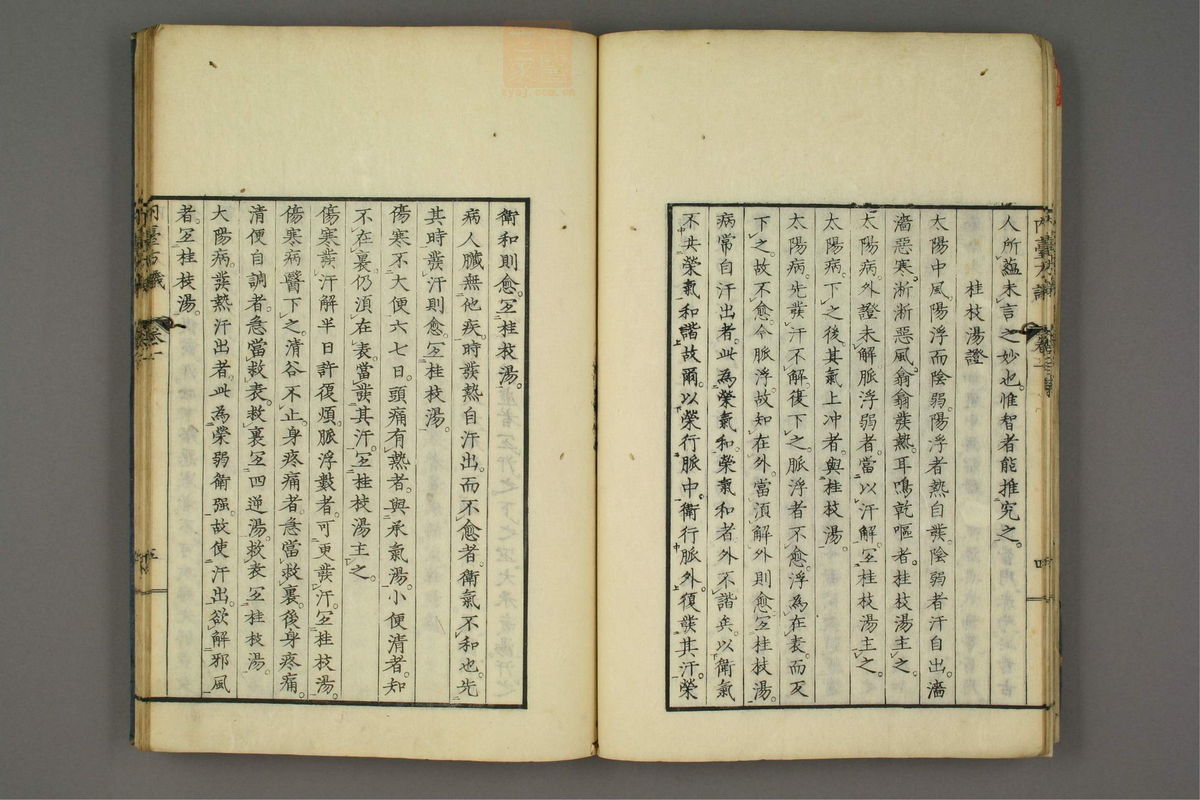 人所蘊未言之妙也。惟智者能推究之。
桂枝湯證
太陽中風陽浮而陰弱。陽浮者熱自發。陰弱者汗自出。濇
濇惡寒。淅淅惡風。翕翕發熱。耳鳴乾嘔者。桂枝湯主之。
太陽病。外證未解脈浮弱者。當以汗解。宜桂枝湯主之。
太陽病。下之後。其氣上冲者。與桂枝湯。
太陽病。先發汗不解。復下之。脈浮者不愈。浮為在表。而反
下之。故不愈。今脈浮。故知在外。當須解外則愈。宜桂枝湯。
病常自汗出者。此為榮氣和。榮氣和者。外不諧矣。以衛氣
不共榮氣和諧故爾。以榮行脈中。衛行脈外。復發其汗。榮
衛和則愈。宜桂枝湯。
病人臟無他疾。時發熱自汗出。而不愈者。衛氣不和也。先
其時發汗則愈。宜桂枝湯。
傷寒不大便六七日。頭痛有熱者。與承氣湯。小便清者。知
不在裏。仍須在表。當發其汗。宜桂枝湯主之。
傷寒發汗解半日許復煩。脈浮數者。可更發汗。宜桂枝湯。
傷寒病醫下之。清谷不止。身疼痛者。急當救裏。後身疼痛。
清便自調者。急當救表。救裏宜四逆湯。救表宜桂枝湯。
大陽病。發熱汗出者。此為榮弱衛强。故使汗出。欲解邪風
者。宜桂枝湯。